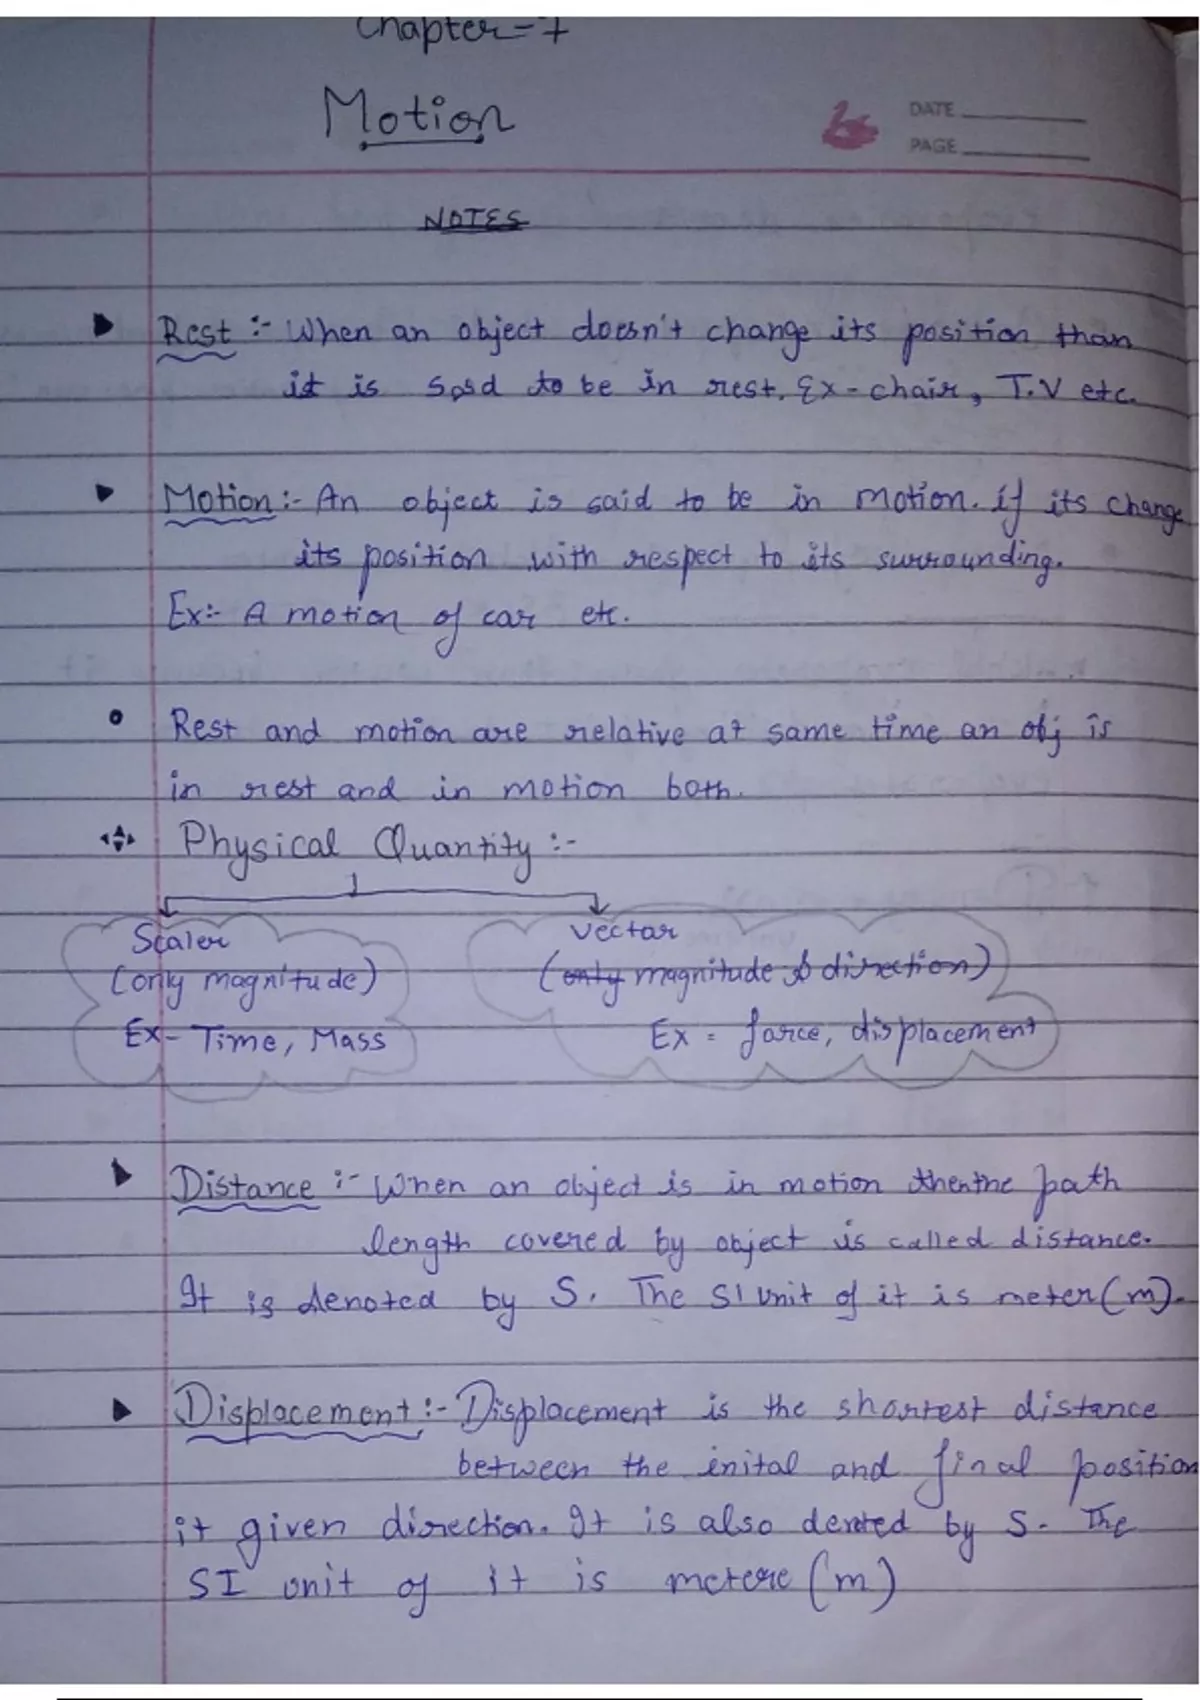 Chapter-7
Motion
DATE
PAGE
NOTES
Rest :- When an object doesn't change its position than
it is said to be in rest. Ex - chair, T.V etc.
Motion :- An object is said to be in motion. if its change
its position with respect to its surrounding.
Ex:- A motion of car etc.
Rest and motion are relative at same time an obj is
in rest and in motion both.
Physical Quantity :-
Scaler
(only magnitude)
Ex - Time, Mass
Vectar
(only magnitude & direction)
Ex = force, displacement
Distance :- When an object is in motion then the path
length covered by object is called distance.
It is denoted by S. The SI Unit of it is meter (m).
Displacement :- Displacement is the shortest distance
between the inital and final position
it given direction. It is also denoted by S. The
SI unit of it is metere (m)